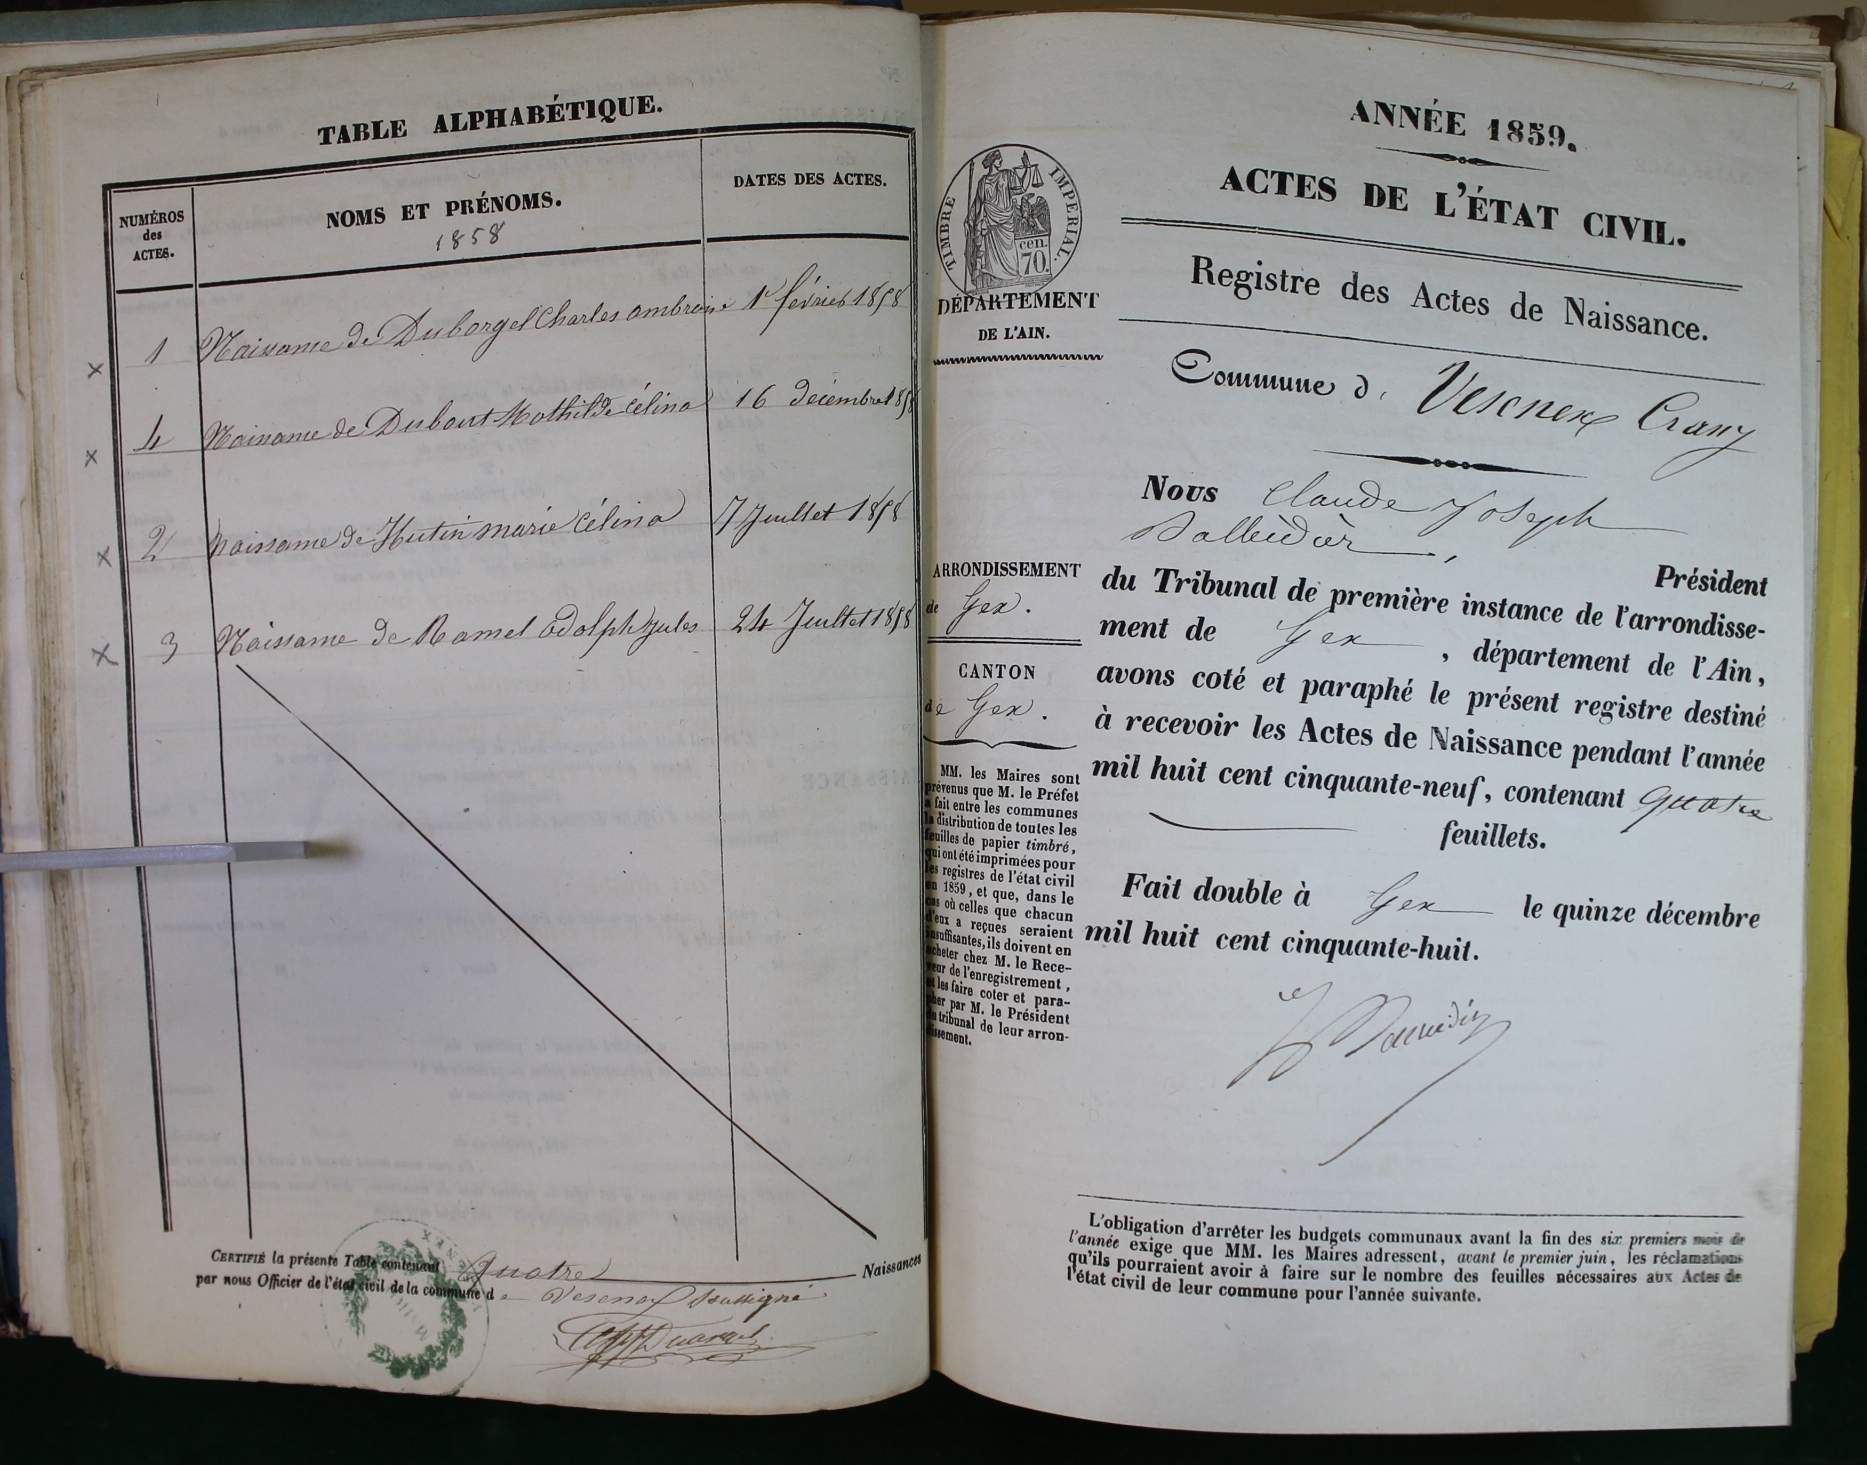 TABLE ALPHABÉTIQUE.
NUMÉROS
des
ACTES.
NOMS ET PRÉNOMS.
1858
DATES DES ACTES.
1 Naissance de Duborgel Charles ambroise 1r février 1858
4 Naissance de Dubout Mathilde Célina 16 décembre 1858
2 naissance de Hutin marie Célina 7 Juillet 1858
3 Naissance de Ramel adolph Jules 24 Juillet 1858
CERTIFIÉ la présente Table contenant quatre Naissances
par nous Officier de l'état civil de la commune de Vesenex Soussigné
ANNÉE 1859.
TIMBRE IMPERIAL.
cen.
70.
DÉPARTEMENT
DE L'AIN.
ACTES DE L'ÉTAT CIVIL.
Registre des Actes de Naissance.
Commune d Vesenex Crassy
Nous Claude Joseph
Président
ARRONDISSEMENT
de Gex.
CANTON
de Gex.
du Tribunal de première instance de l'arrondisse-
ment de Gex, département de l'Ain,
avons coté et paraphé le présent registre destiné
à recevoir les Actes de Naissance pendant l'année
mil huit cent cinquante-neuf, contenant quatre
feuillets.
MM. les Maires sont
prévenus que M. le Préfet
a fait entre les communes
la distribution de toutes les
feuilles de papier timbré,
qui ont été imprimées pour
les registres de l'état civil
en 1859, et que, dans le
cas où celles que chacun
d'eux a reçues seraient
insuffisantes, ils doivent en
acheter chez M. le Rece-
veur de l'enregistrement,
et les faire coter et para-
pher par M. le Président
du tribunal de leur arron-
dissement.
Fait double à Gex le quinze décembre
mil huit cent cinquante-huit.
L'obligation d'arrêter les budgets communaux avant la fin des six premiers mois de
l'année exige que MM. les Maires adressent, avant le premier juin, les réclamations
qu'ils pourraient avoir à faire sur le nombre des feuilles nécessaires aux Actes de
l'état civil de leur commune pour l'année suivante.